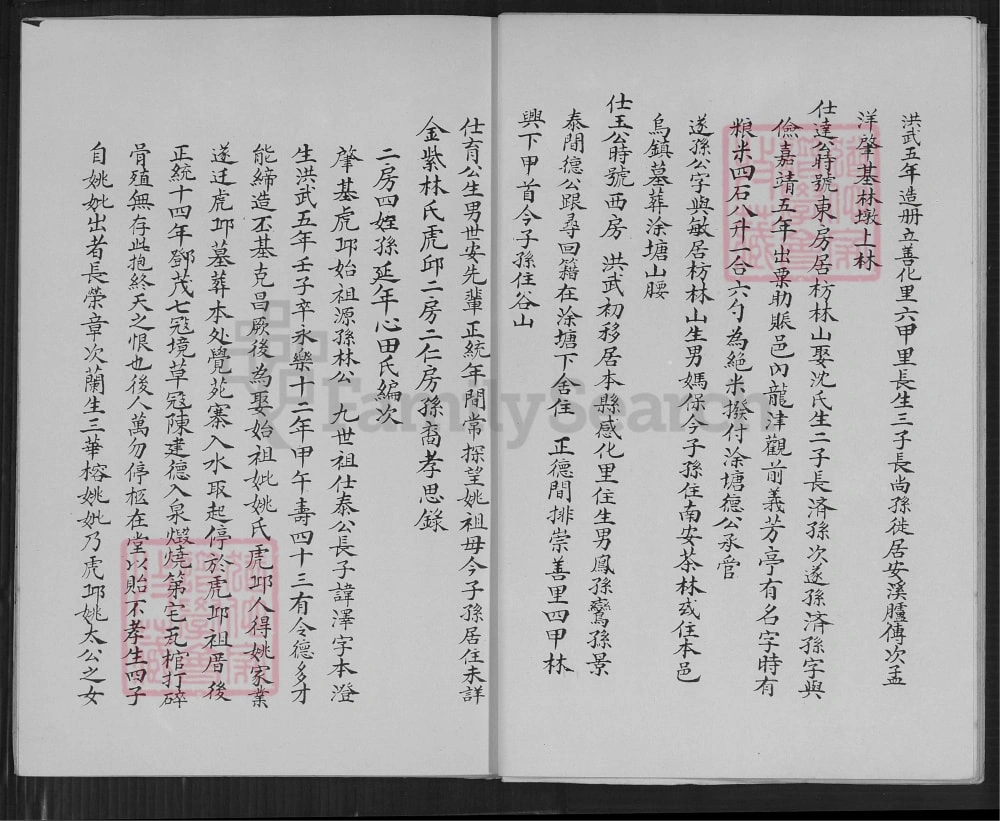 洪武五年造冊立善化里六甲里長生三子長尚孫徙居安溪臚傳次孟
洋肇基林墩上林
仕達公時號東房居枋林山娶沈氏生二子長済孫次遂孫済孫字與
儉嘉靖五年出粟助賑邑內龍津觀前義芳亭有名字時有
粮米四石八升一合六勺為絶米撥付涂塘德公承管
遂孫公字與敏居枋林山生男媽保今子孫住南安茶林或住本邑
烏鎮墓葬涂塘山腰
仕玉公時號西房 洪武初移居本縣感化里住生男鳳孫鸞孫景
泰間德公跟尋回籍在涂塘下舍住 正德間排崇善里四甲林
興下甲首今子孫住谷山
仕育公生男世安先輩正統年間常探望姚祖母今子孫居住未詳
金紫林氏虎邱二房二仁房孫裔孝思錄
二房四姪孫延年心田氏編次
肇基虎邱始祖源孫林公 九世祖仕泰公長子諱澤字本澄
生洪武五年壬子卒永樂十二年甲午壽四十三有令德多才
能締造丕基克昌厥後為娶始祖妣姚氏虎邱人得姚家業
遂迁虎邱墓葬本处覺苑寨入水取起停於虎邱祖厝後
正統十四年鄧茂七寇境草寇陳建德入泉燬燒第宅瓦棺打碎
骨殖無存此抱終天之恨也後人萬勿停柩在堂以貽不孝生四子
自姚妣出者長榮章次蘭生三華榕姚妣乃虎邱姚太公之女
FamilySearch